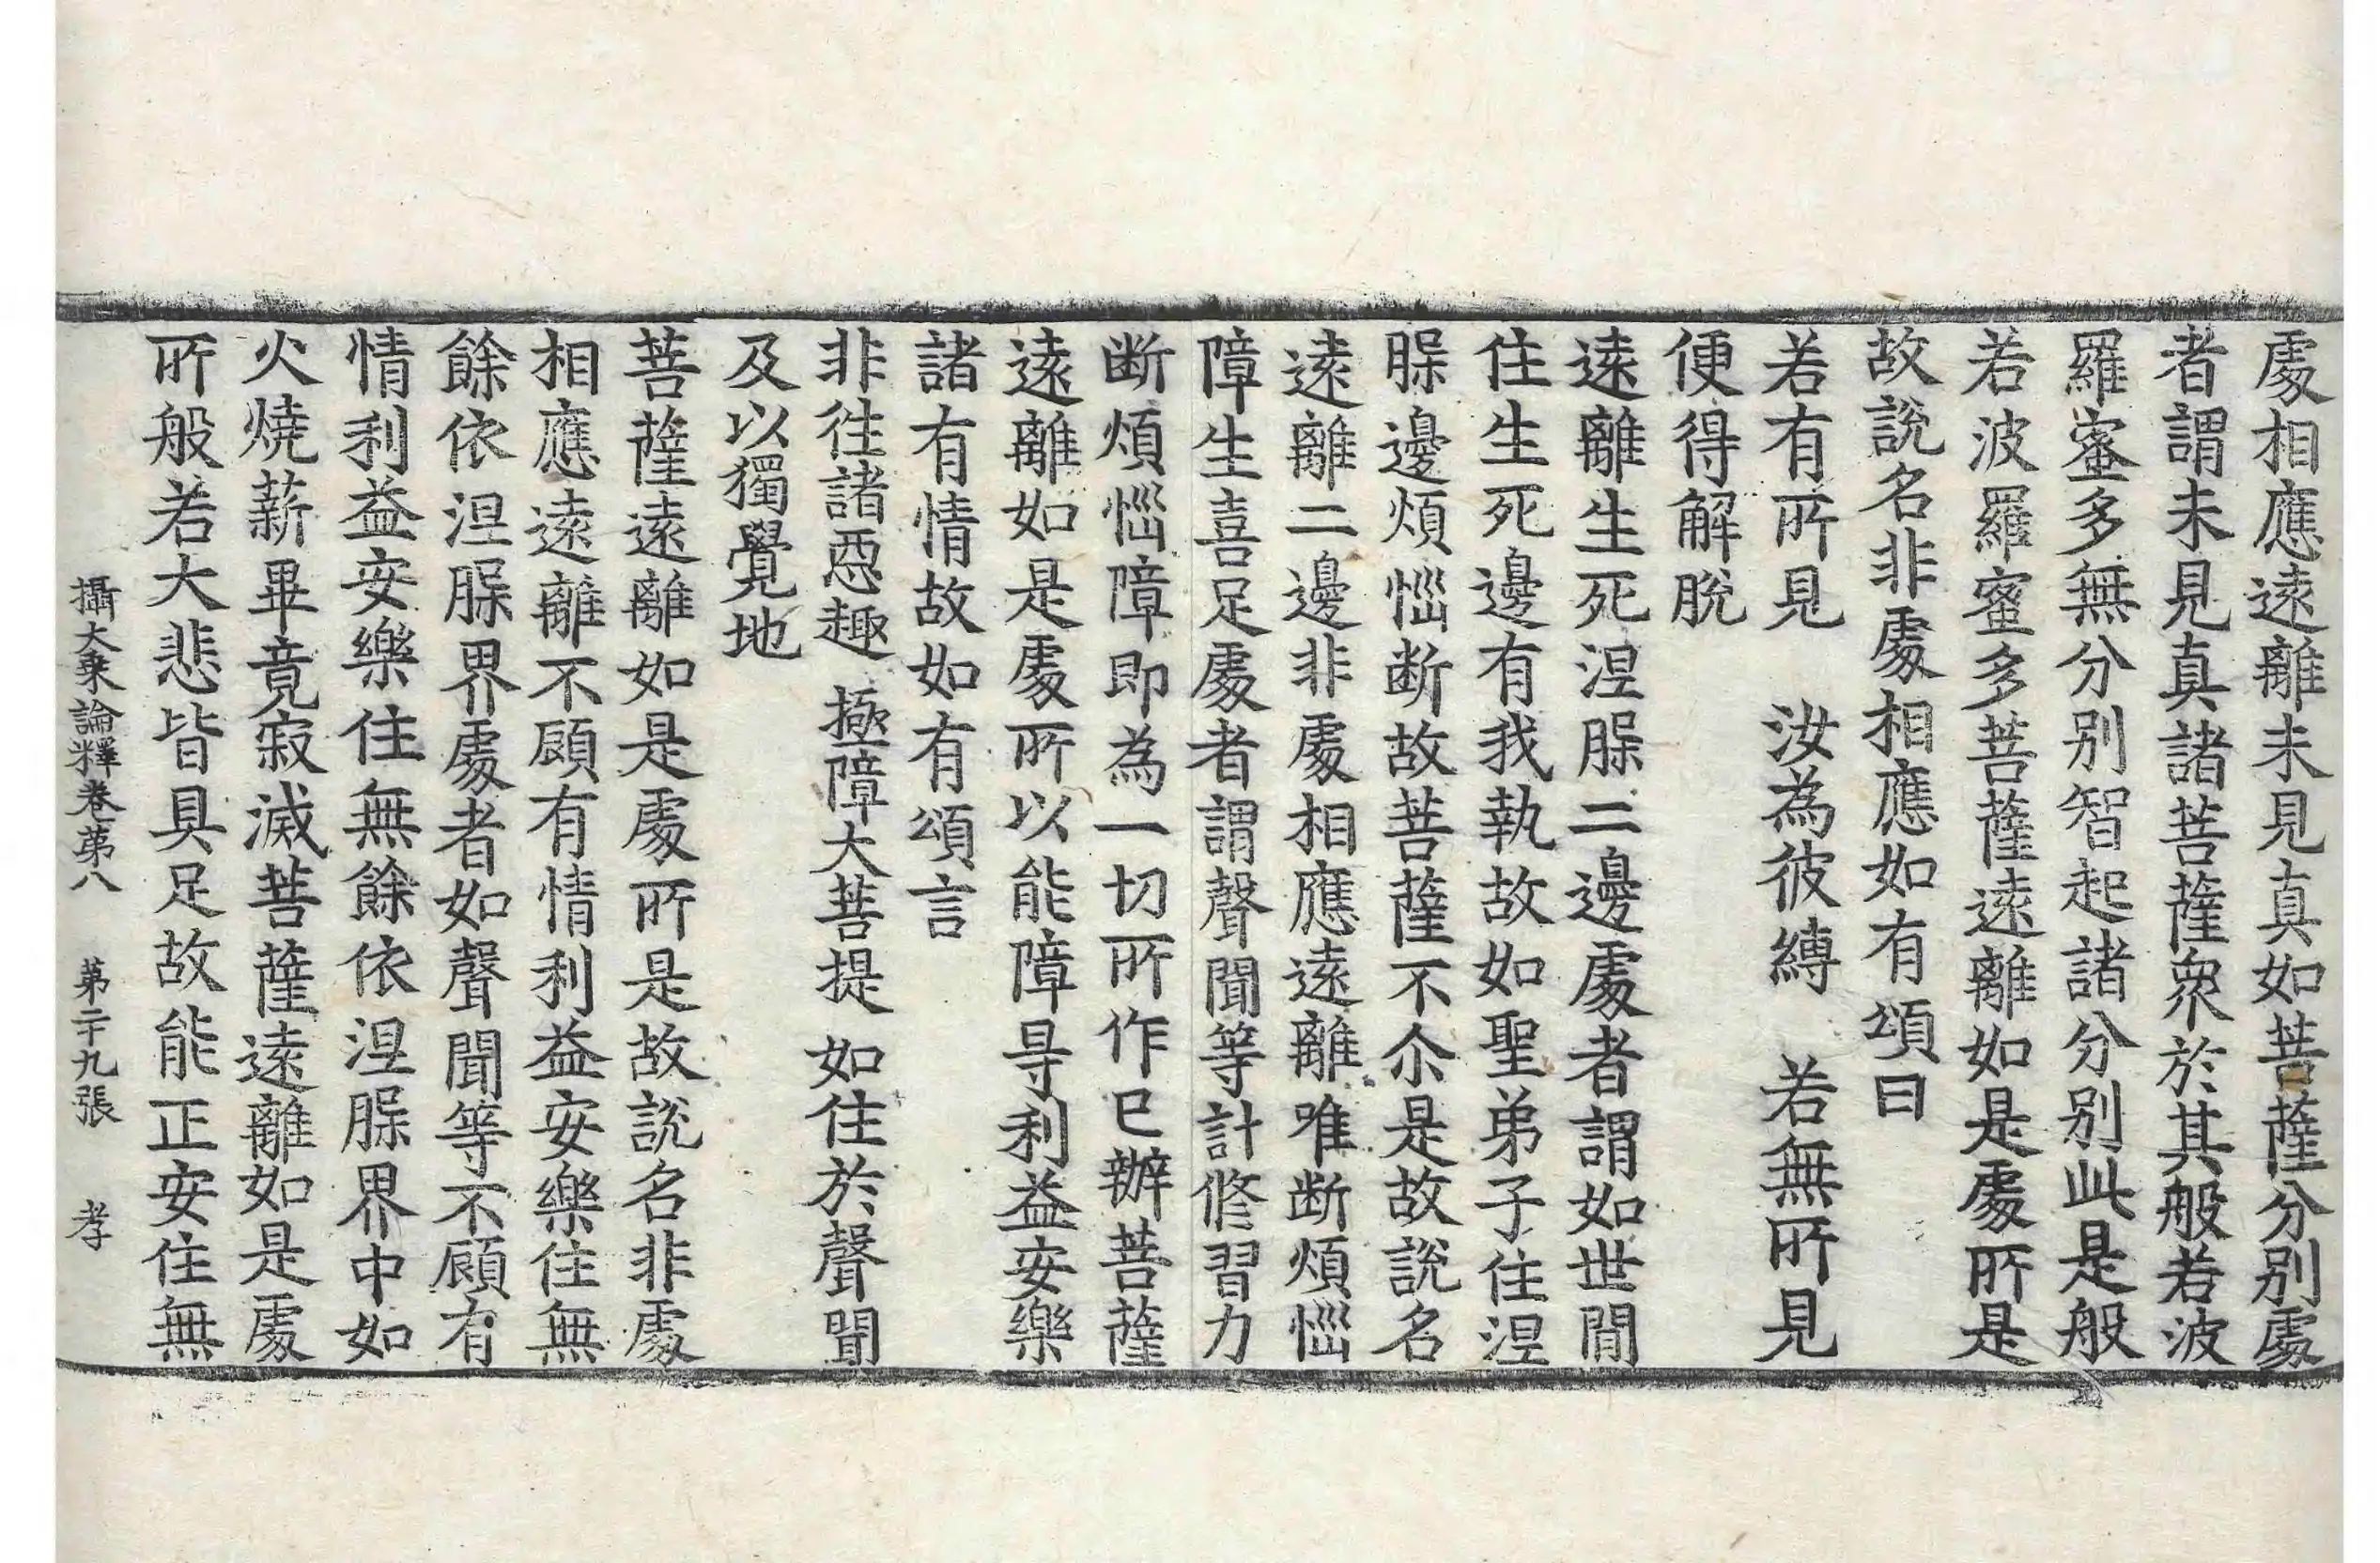 處相應遠離未見真如菩薩分別處
者謂未見真諸菩薩衆於其般若波
羅蜜多無分別智起諸分別此是般
若波羅蜜多菩薩遠離如是處所是
故說名非處相應如有頌曰
若有所見　汝為彼縛　若無所見
便得解脫
遠離生死涅槃二邊處者謂如世間
住生死邊有我執故如聖弟子住涅
槃邊煩惱断故菩薩不尒是故說名
遠離二邊非處相應遠離唯断煩惱
障生喜足處者謂聲聞等計修習力
断煩惱障即為一切所作已辦菩薩
遠離如是處所以能障㝵利益安樂
諸有情故如有頌言
非往諸惡趣　極障大菩提　如住於聲聞
及以獨覺地
菩薩遠離如是處所是故說名非處
相應遠離不顧有情利益安樂住無
餘依涅槃界處者如聲聞等不顧有
情利益安樂住無餘依涅槃界中如
火燒薪畢竟寂滅菩薩遠離如是處
所般若大悲皆具足故能正安住無
攝大乗論釋卷第八　第二十九張　孝